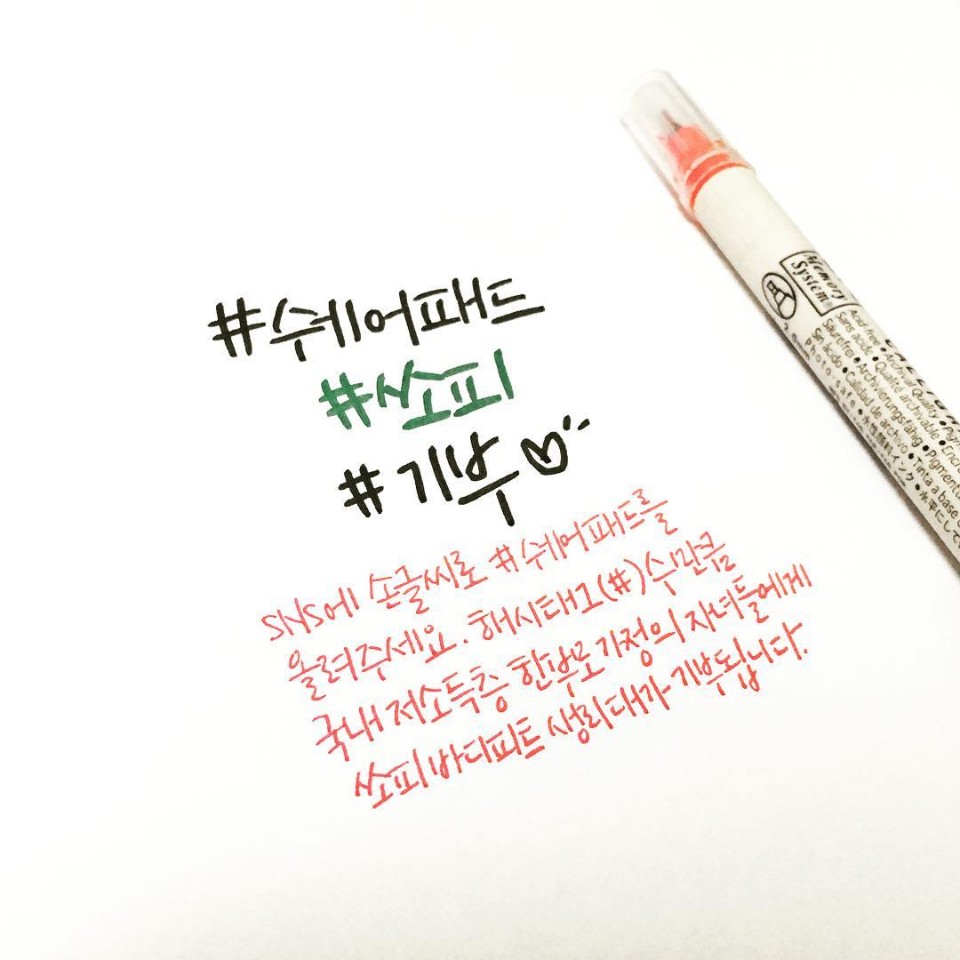 #쉐어패드
#쏘피
#기부♡
SNS에 손글씨로 #쉐어패드를
올려주세요. 해시태그(#)수만큼
국내 저소득층 한부모가정의 자녀들에게
쏘피바디피트 생리대가 기부됩니다.
Memory
System
Acid-free • Archival Quality
Sans acide • Qualité archivable
Säurefrei • Archivierungsfähig
Sin ácido • Calidad de archivo
Photo-safe